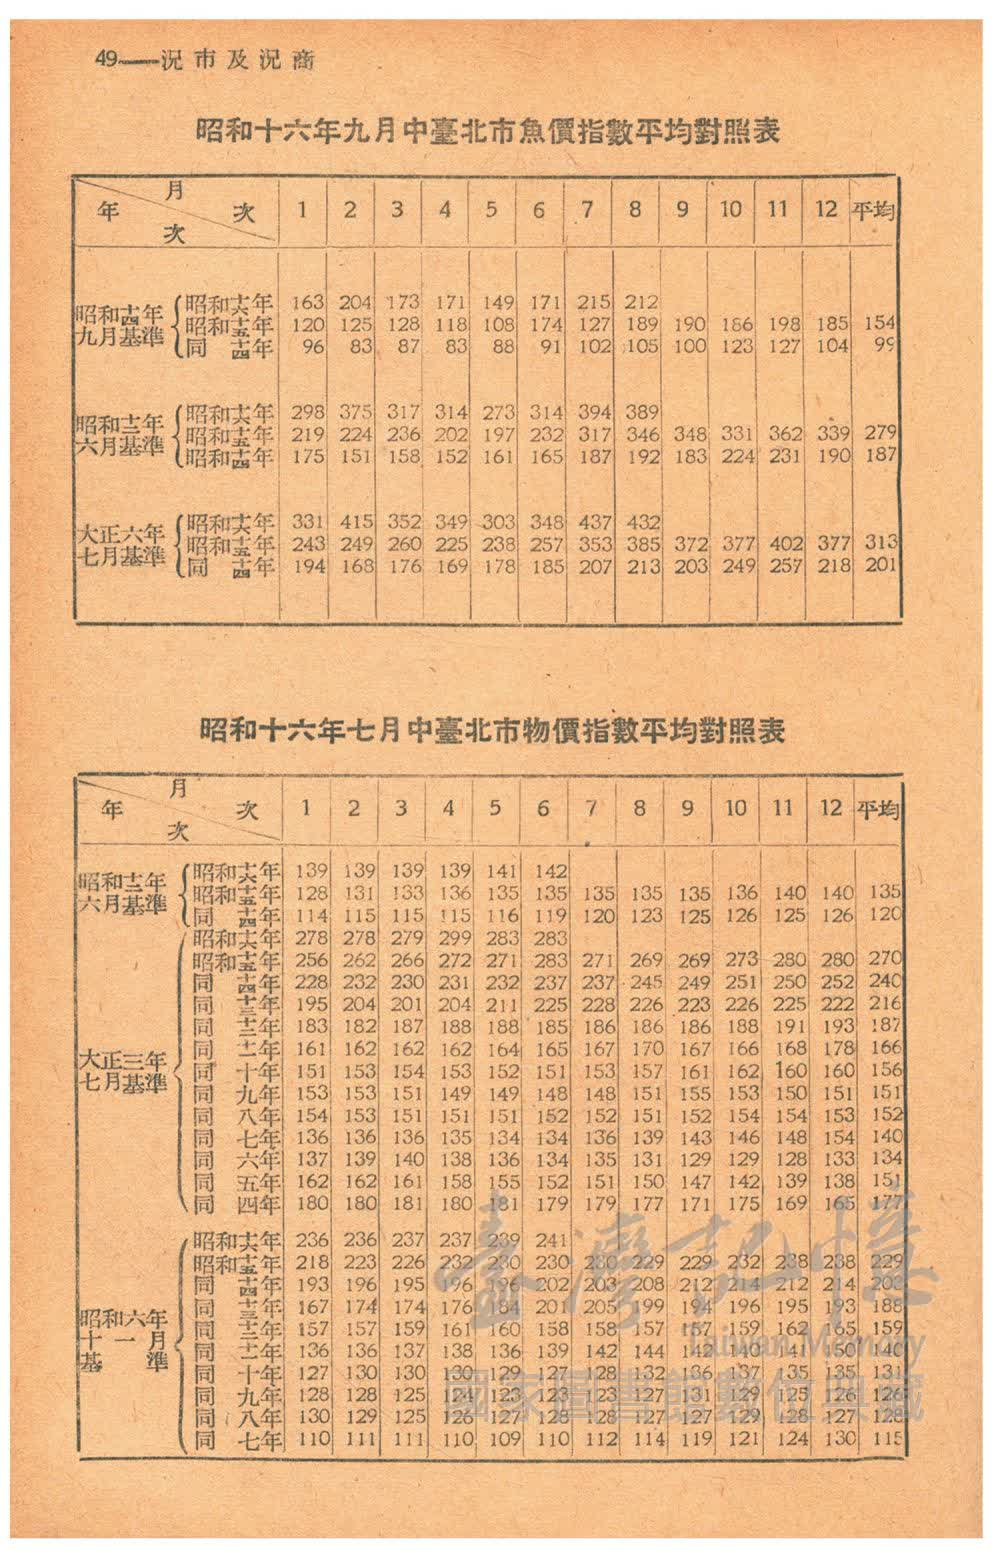 49——況市及況商
昭和十六年九月中臺北市魚價指數平均對照表
年次 月次 1 2 3 4 5 6 7 8 9 10 11 12 平均
昭和十四年九月基準
昭和十六年 163 204 173 171 149 171 215 212
昭和十五年 120 125 128 118 108 174 127 189 190 186 198 185 154
同 十四年 96 83 87 83 88 91 102 105 100 123 127 104 99
昭和十二年六月基準
昭和十六年 298 375 317 314 273 314 394 389
昭和十五年 219 224 236 202 197 232 317 346 348 331 362 339 279
昭和十四年 175 151 158 152 161 165 187 192 183 224 231 190 187
大正六年七月基準
昭和十六年 331 415 352 349 303 348 437 432
昭和十五年 243 249 260 225 238 257 353 385 372 377 402 377 313
同 十四年 194 168 176 169 178 185 207 213 203 249 257 218 201
昭和十六年七月中臺北市物價指數平均對照表
年次 月次 1 2 3 4 5 6 7 8 9 10 11 12 平均
昭和十二年六月基準
昭和十六年 139 139 139 139 141 142
昭和十五年 128 131 133 136 135 135 135 135 135 136 140 140 135
同 十四年 114 115 115 115 116 119 120 123 125 126 125 126 120
大正三年七月基準
昭和十六年 278 278 279 299 283 283
昭和十五年 256 262 266 272 271 283 271 269 269 273 280 280 270
同 十四年 228 232 230 231 232 237 237 245 249 251 250 252 240
同 十三年 195 204 201 204 211 225 228 226 223 226 225 222 216
同 十二年 183 182 187 188 188 185 186 186 186 188 191 193 187
同 十一年 161 162 162 162 164 165 167 170 167 166 168 178 166
同 十年 151 153 154 153 152 151 153 157 161 162 160 160 156
同 九年 153 153 151 149 149 148 148 151 155 153 150 151 151
同 八年 154 153 151 151 151 152 152 151 152 154 154 153 152
同 七年 136 136 136 135 134 134 136 139 143 146 148 154 140
同 六年 137 139 140 138 136 134 135 131 129 129 128 133 134
同 五年 162 162 161 158 155 152 151 150 147 142 139 138 151
同 四年 180 180 181 180 181 179 179 177 171 175 169 165 177
昭和六年十一月基準
昭和十六年 236 236 237 237 239 241
昭和十五年 218 223 226 232 230 230 230 229 229 232 238 238 229
同 十四年 193 196 195 196 196 202 203 208 212 214 212 214 202
同 十三年 167 174 174 176 184 201 205 199 194 196 195 193 188
同 十二年 157 157 159 161 160 158 158 157 157 159 162 165 159
同 十一年 136 136 137 138 136 139 142 144 142 140 141 150 140
同 十年 127 130 130 130 129 127 128 132 136 137 135 135 131
同 九年 128 128 125 124 123 123 123 127 131 129 125 126 126
同 八年 130 129 125 126 127 128 128 127 127 129 128 127 128
同 七年 110 111 111 110 109 110 112 114 119 121 124 130 115
臺灣記憶
Taiwan Memory
國家圖書館數位典藏